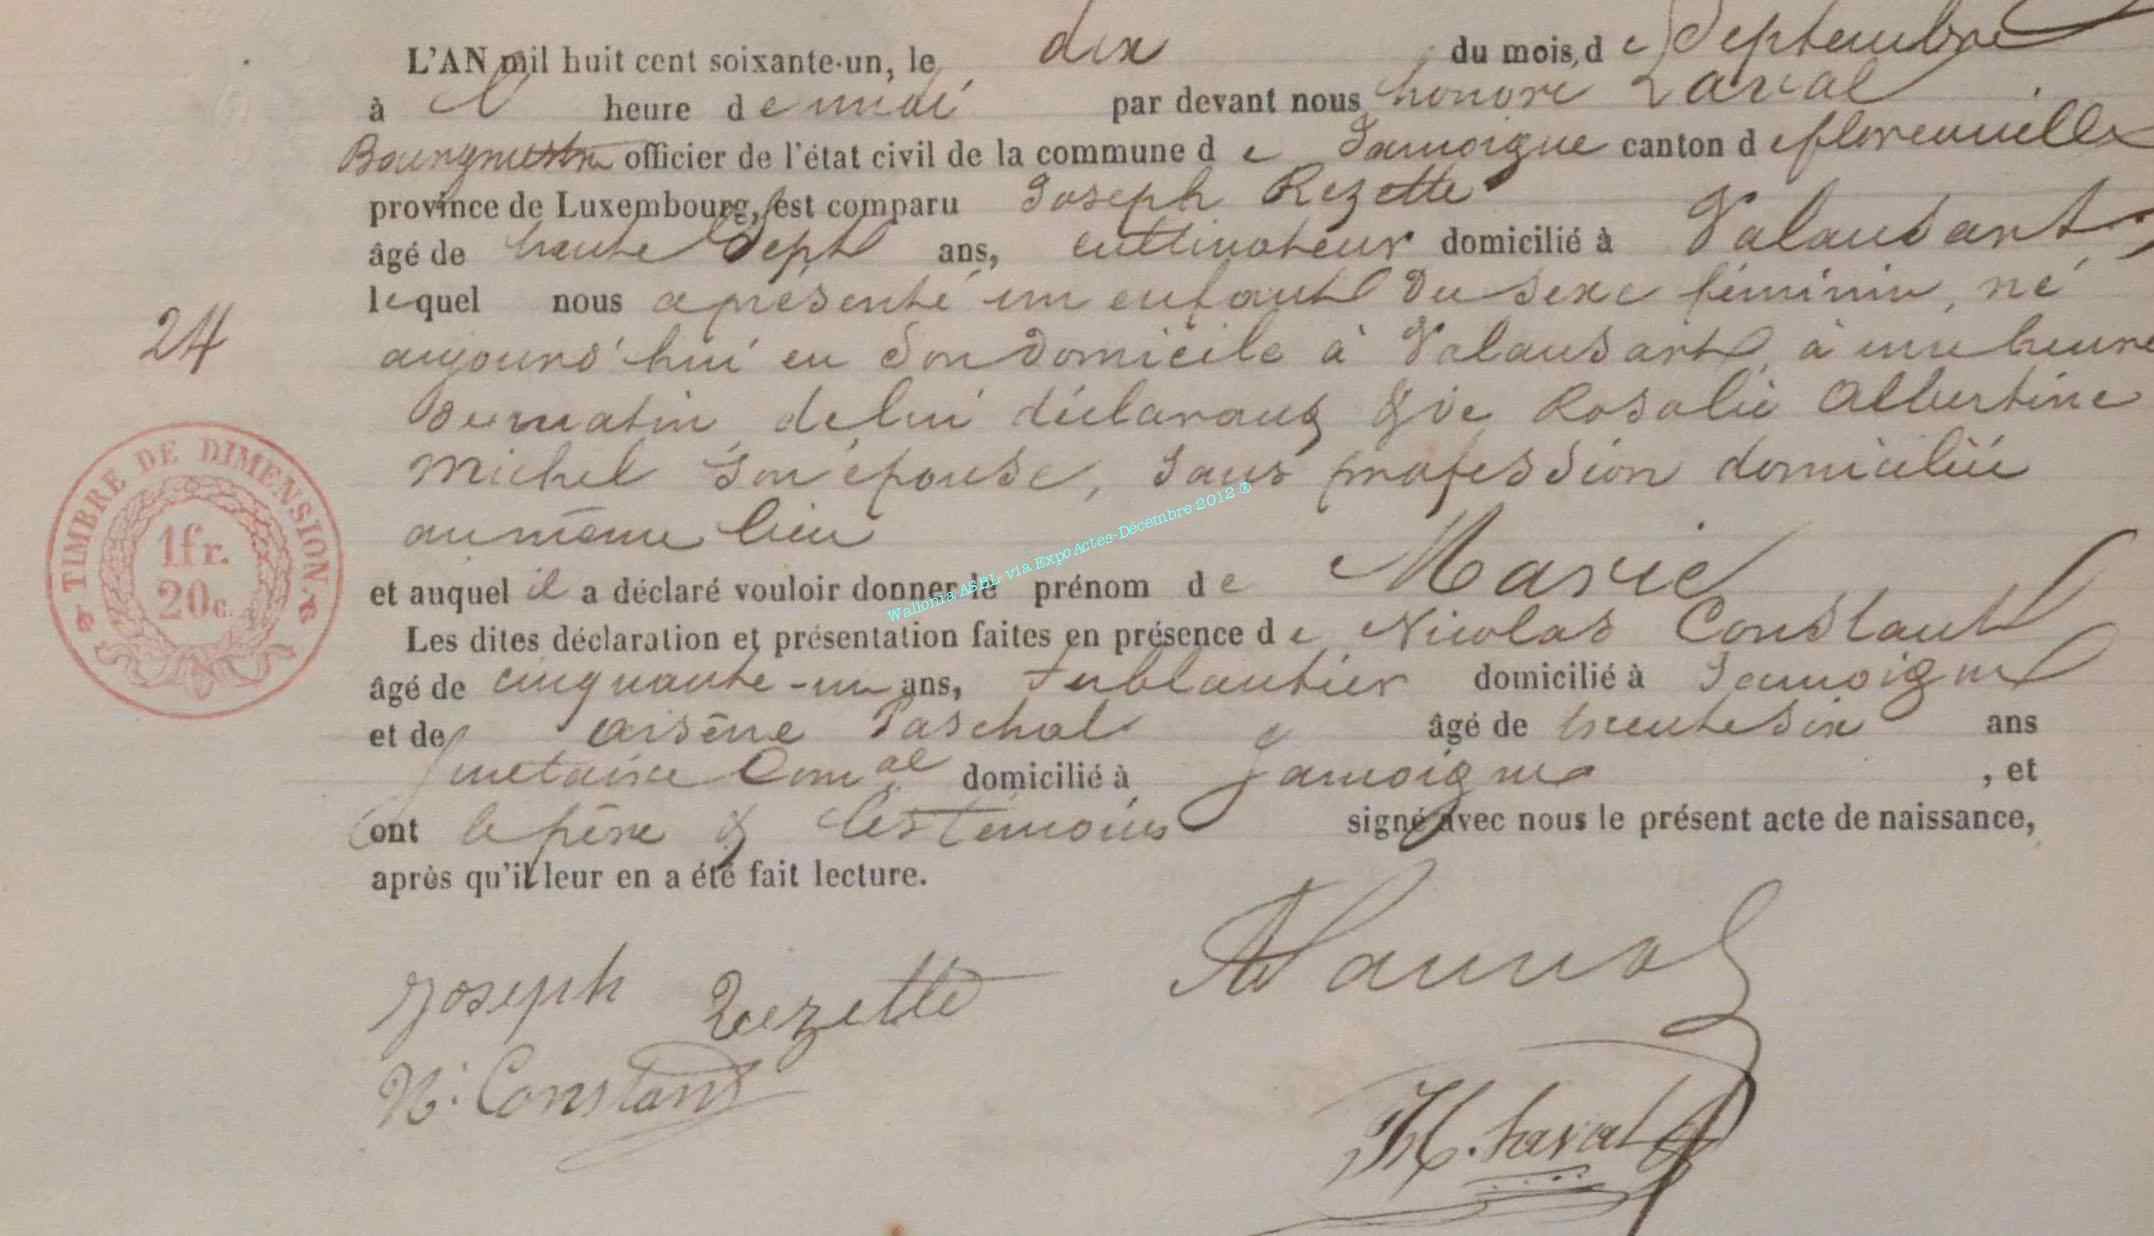 L'AN mil huit cent soixante-un, le dix du mois de Septembre
à l' heure de midi par devant nous honoré Laval
Bourgmestre officier de l'état civil de la commune de Jamoigne canton de florenville
province de Luxembourg, est comparu Joseph Rezette
âgé de trente Sept ans, cultivateur domicilié à Valansart
lequel nous a présenté un enfant du sexe féminin, né
aujourd'hui en son domicile à Valansart, à une heure
du matin, de lui déclarant & de Rosalie Albertine
Michel son épouse, sans profession domiciliée
au même lieu
et auquel il a déclaré vouloir donner le prénom de Marie
Les dites déclaration et présentation faites en présence de Nicolas Constant
âgé de cinquante-un ans, ferblantier domicilié à Jamoigne
et de arsène Paschal âgé de trente six ans
secrétaire Com.al domicilié à Jamoigne, et
ont le père & les témoins signé avec nous le présent acte de naissance,
après qu'il leur en a été fait lecture.
24
TIMBRE DE DIMENSION.
1fr.
20c.
Wallonia ASBL via Expo Actes-Décembre 2012 ®
Joseph Rezette
N. Constant
H. Laval